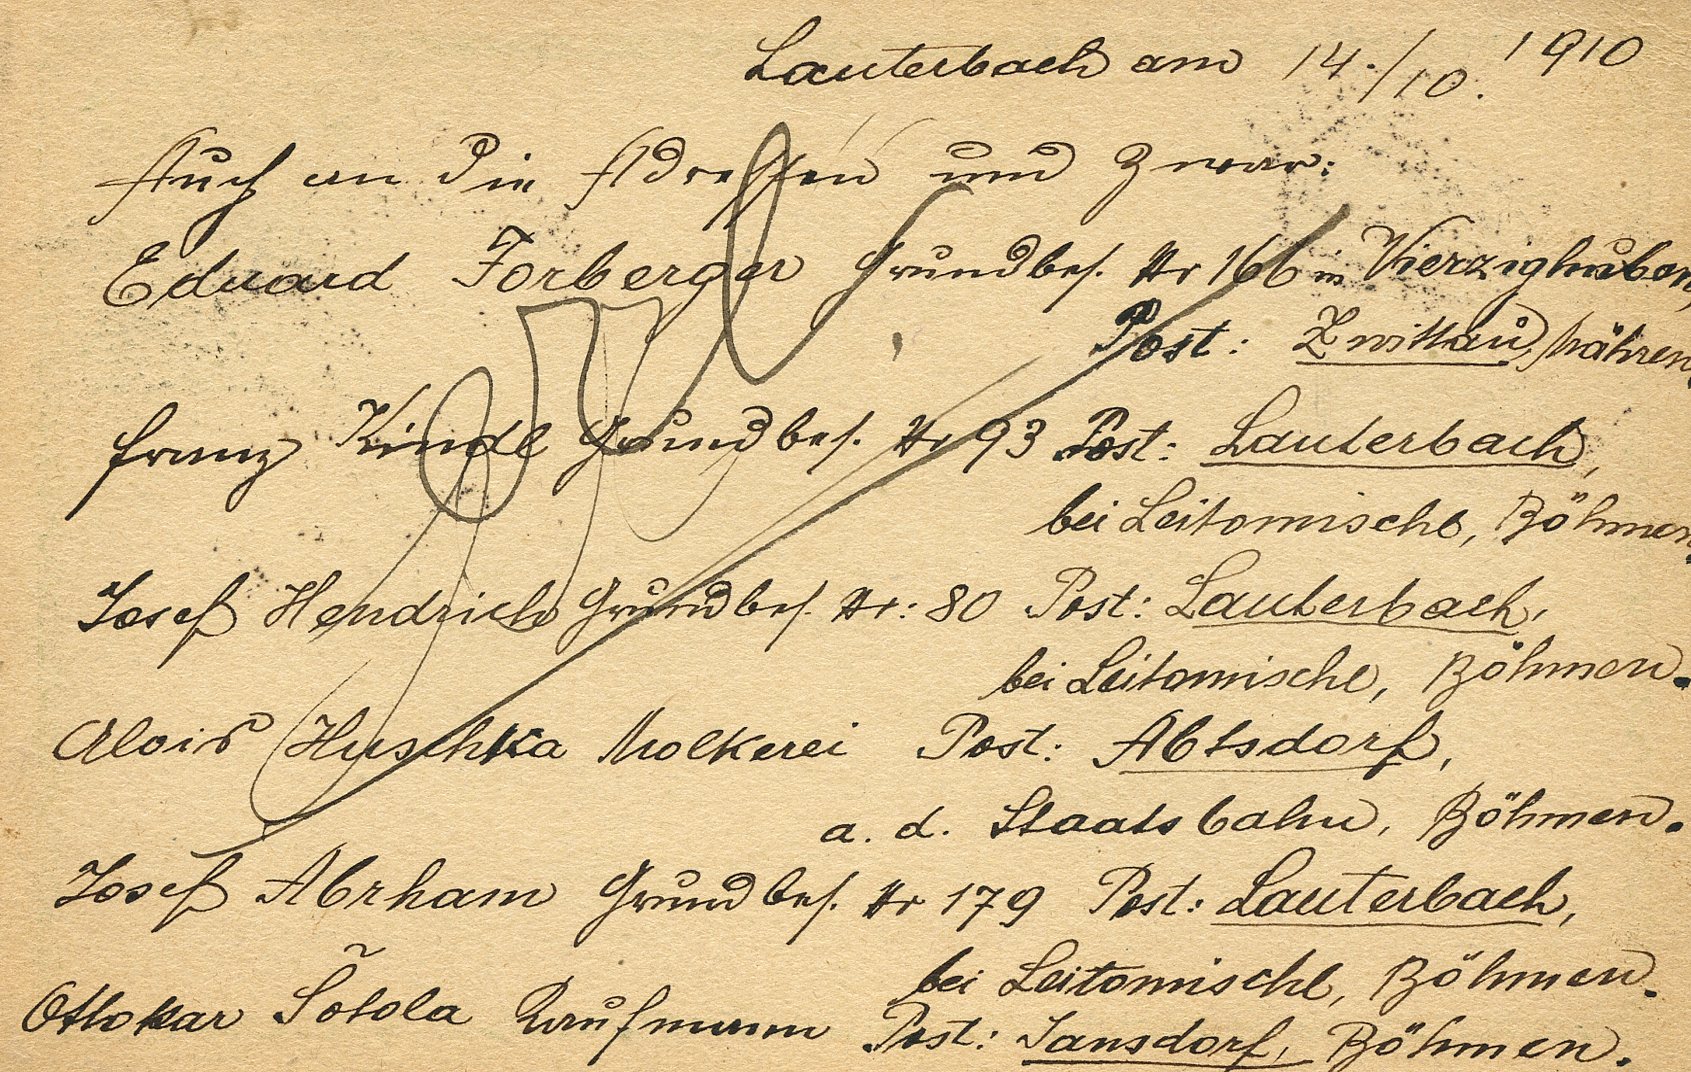 Lauterbach am 14./10. 1910
Auch an die Adressen und zwar:
Eduard Forberger Grundbes. Nr 166 in Vierzighuben,
Post: Zwittau, Mähren.
Franz Kindl Grundbes. Nr 93 Post: Lauterbach,
bei Leitomischl, Böhmen.
Josef Hendrich Grundbes. Nr: 80 Post: Lauterbach,
bei Leitomischl, Böhmen.
Alois Huschka Molkerei Post: Abtsdorf,
a. d. Staatsbahn, Böhmen.
Josef Abrham Grundbes. Nr 179 Post: Lauterbach,
bei Leitomischl, Böhmen.
Ottokar Šotola Kaufmann Post: Jansdorf, Böhmen.